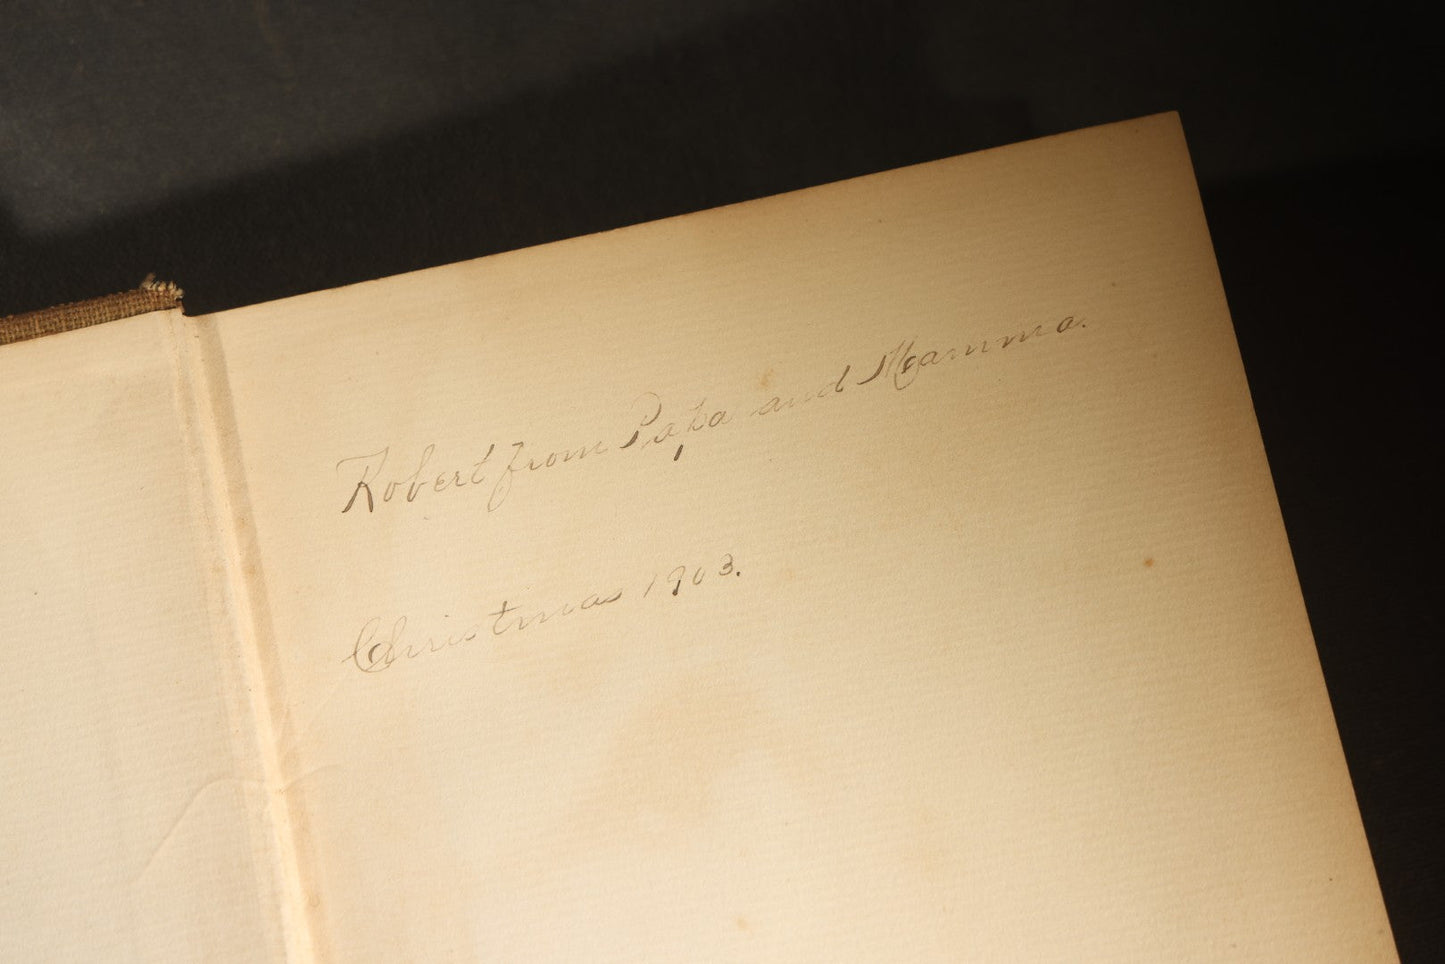 Robert from Papa and Mamma.
Christmas 1903.